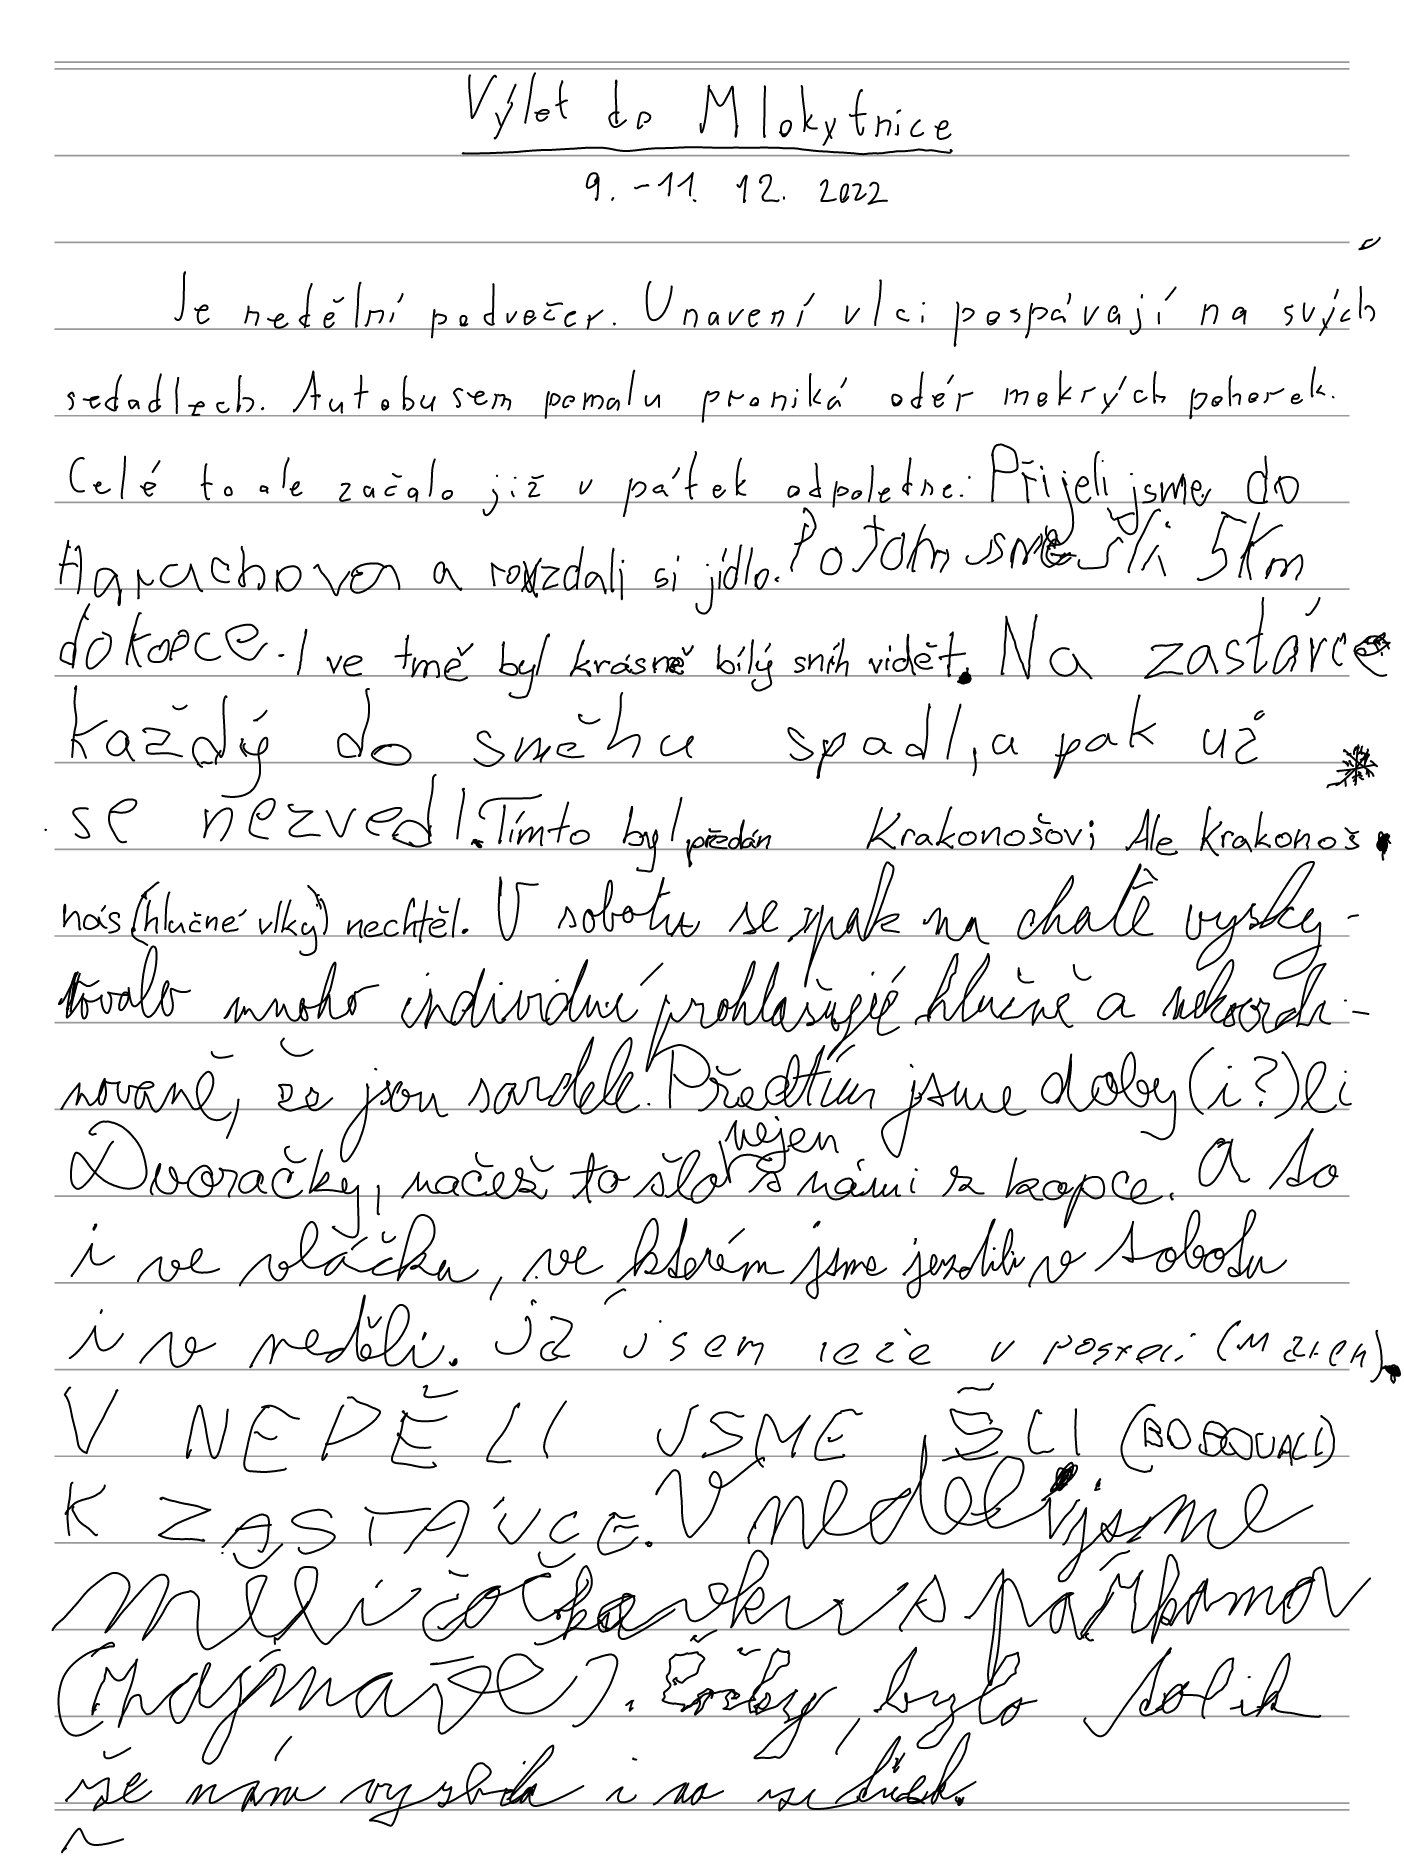 Výlet do Mlokytnice
9. -11. 12. 2022
Je nedělní podvečer. Unavení vlci pospávají na svých
sedadlech. Autobusem pomalu proniká odér mokrých pohorek.
Celé to ale začalo již v pátek odpoledne: Přijeli jsme do
Harachova a rozdali si jídlo. Potom jsme šli 5km
do kopce. I ve tmě byl krásně bílý sníh vidět. Na zastávce
každý do sněhu spadl, a pak už
se nezvedl. Tímto byl předán Krakonošovi Ale Krakonoš
nás (hlučné vlky) nechtěl. V sobotu se zpak na chatě vysky-
tovalo mnoho individuí prohlašující hlučně a nekoordi-
novaně, že jsou sardele. Předtím jsme doby(i?)li
Dvoračky, načež to šlo nejen s námi z kopce. A to
i ve vláčku, ve kterém jsme jezdili v sobotu
i v neděli. já jsem leže v posteli (Mařen).
V NEDĚLI JSME ŠLI (BOBOVALI)
K ZASTÁVCE. V neděli jsme
měli čočkovku s párkama
(mňajmaje). Čočky, bylo tolik
že nám vyzbila i na